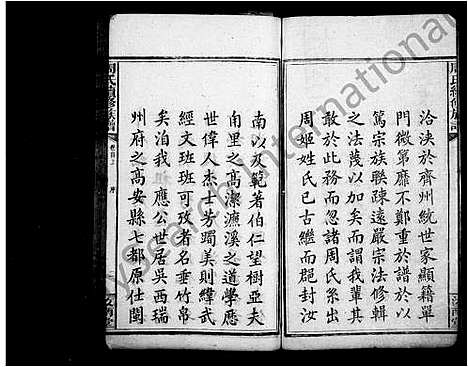 周氏續修族譜
洽浹於齊州統世家顯籍單
門微第靡不鄭重於譜於以
篤宗族聯疎遠嚴宗法修輯
之法蔑以加矣而謂我輩其
敢於此務而忽諸周氏系出
周姬姓氏已古繼而郡封汝
南以及範著伯仁望樹亞夫
南里之高潔濂溪之道學應
世偉人杰士芳躅美則緯武
經文班班可攷者名垂竹帛
矣泊我應公世居吳西瑞
州府之高安縣七都原仕閩
周氏續修族譜
卷首上
序
汝南堂
yssearch International